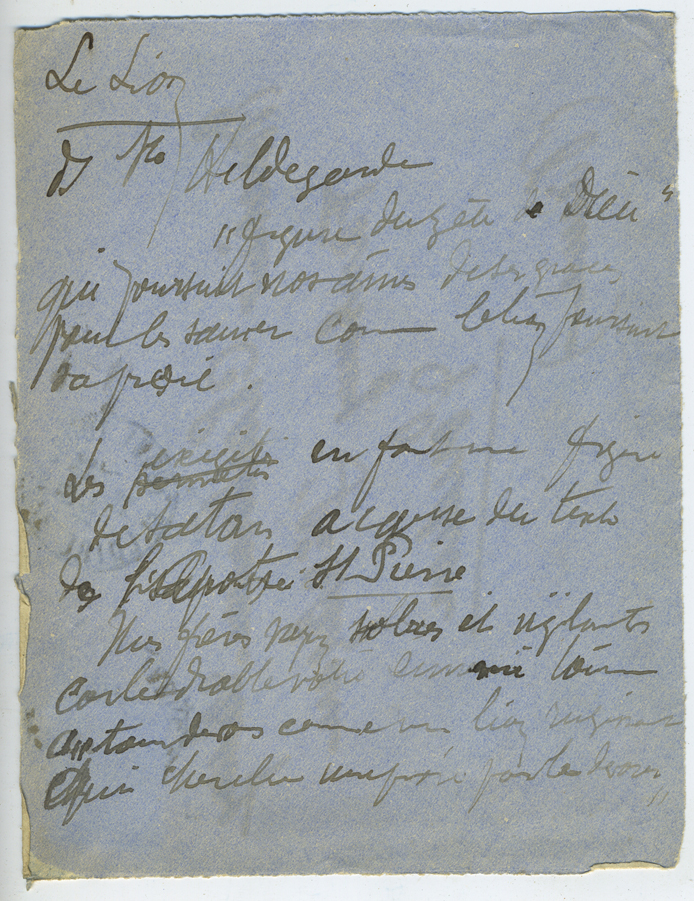 Le Lion
de Ste Hildegarde
"figure du zèle de Dieu"
qui poursuit nos âmes de ses graces
pour les sauver comme le lion poursuit
sa proie.
Les en font une figure
de satan a cause du texte
de l'apotre St Pierre
Mes frères soyez sobres et vigilants
car le diable votre ennemi tourne
autour de vous comme un lion rugissant
qui cherche une proie pour la devorer"